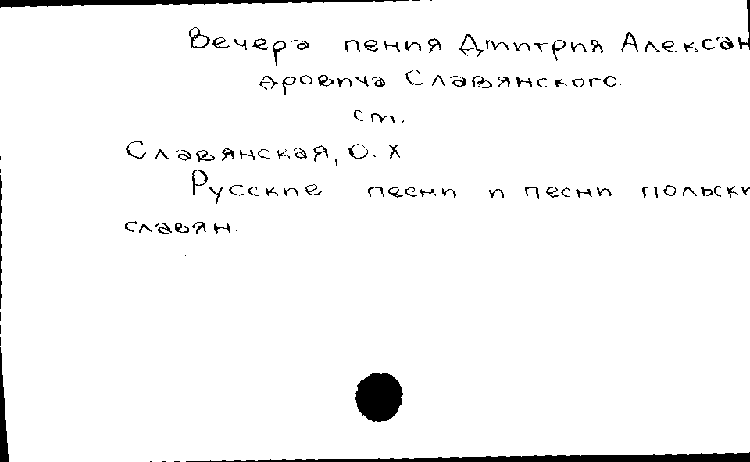 Вечера пения Дмитрия Алексан
дровича Славянского.
см.
Славянская, О. Х
Русские песни и песни польски
славян.